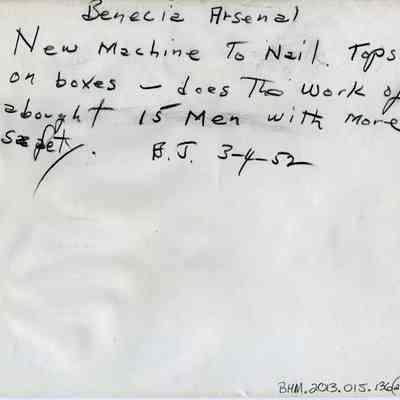 Benecia Arsenal
New Machine To Nail Tops
on boxes – does The Work of
abought 15 Men with More
safety. B.J. 3-4-52
BHM.2013.015.136(2